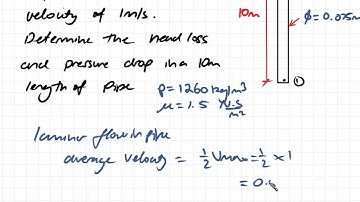 velocity of 1m/s.
Determine the head loss
and pressure drop in a 10m
length of pipe
ρ=1260kg/m³
μ=1.5 N.s/m²
10m
φ=0.075m
①
laminar flow in pipe
average velocity = 1/2 Vmax = 1/2 × 1
= 0.